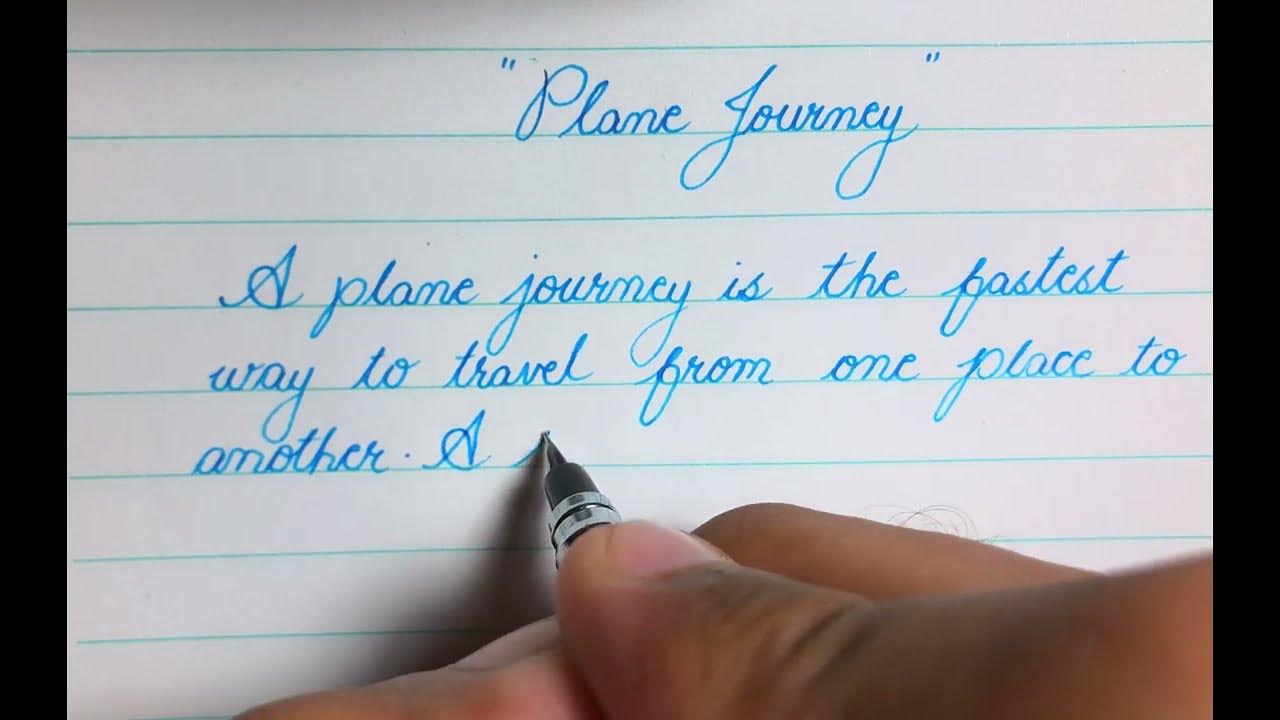 "Plane Journey"
A plane journey is the fastest
way to travel from one place to
another. A